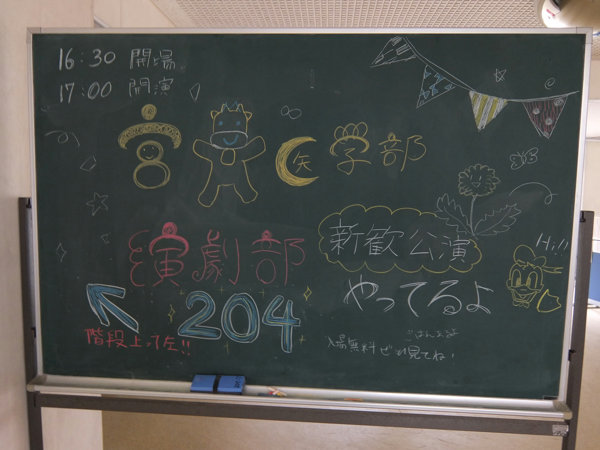 16:30 開場
17:00 開演
宮大医学部
演劇部
新歓公演
やってるよ
Hi!!
204
階段上って左!!
入場無料 ぜひ見てね!